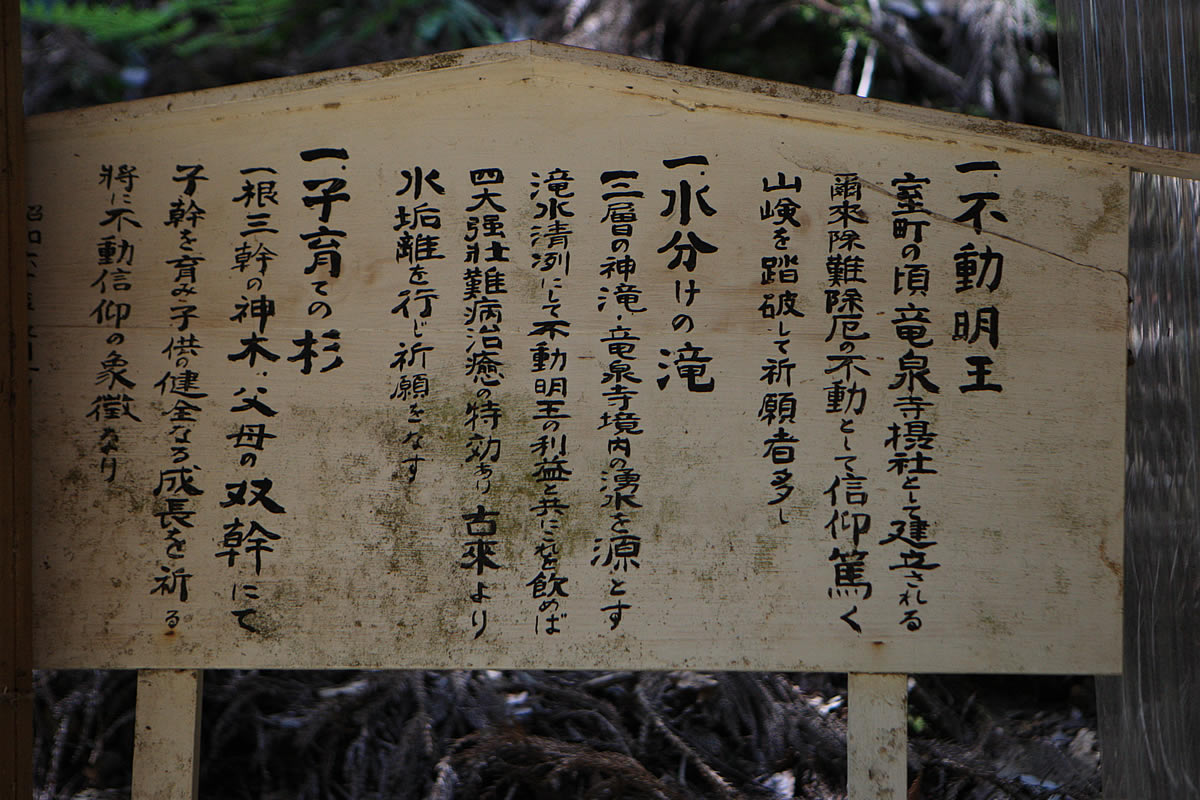 一、不動明王
室町の頃竜泉寺摂社として建立される
爾來除難除厄の不動として信仰篤く
山険を踏破して祈願者多し
一、水分けの滝
三層の神滝・竜泉寺境内の湧水を源とす
滝水清冽にして不動明王の利益と共にこれを飲めば
四大强壮難病治癒の特効あり古來より
水垢離を行じ祈願をなす
一、子育ての杉
一根三幹の神木、父母の双幹にて
子幹を育み子供の健全なる成長を祈る
將に不動信仰の象徴なり
昭和六十